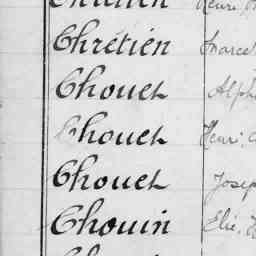 Chrétien Henri
Chrétien Marcel
Chouet Alph
Chouet Henri
Chouet Josep
Chouin Elie